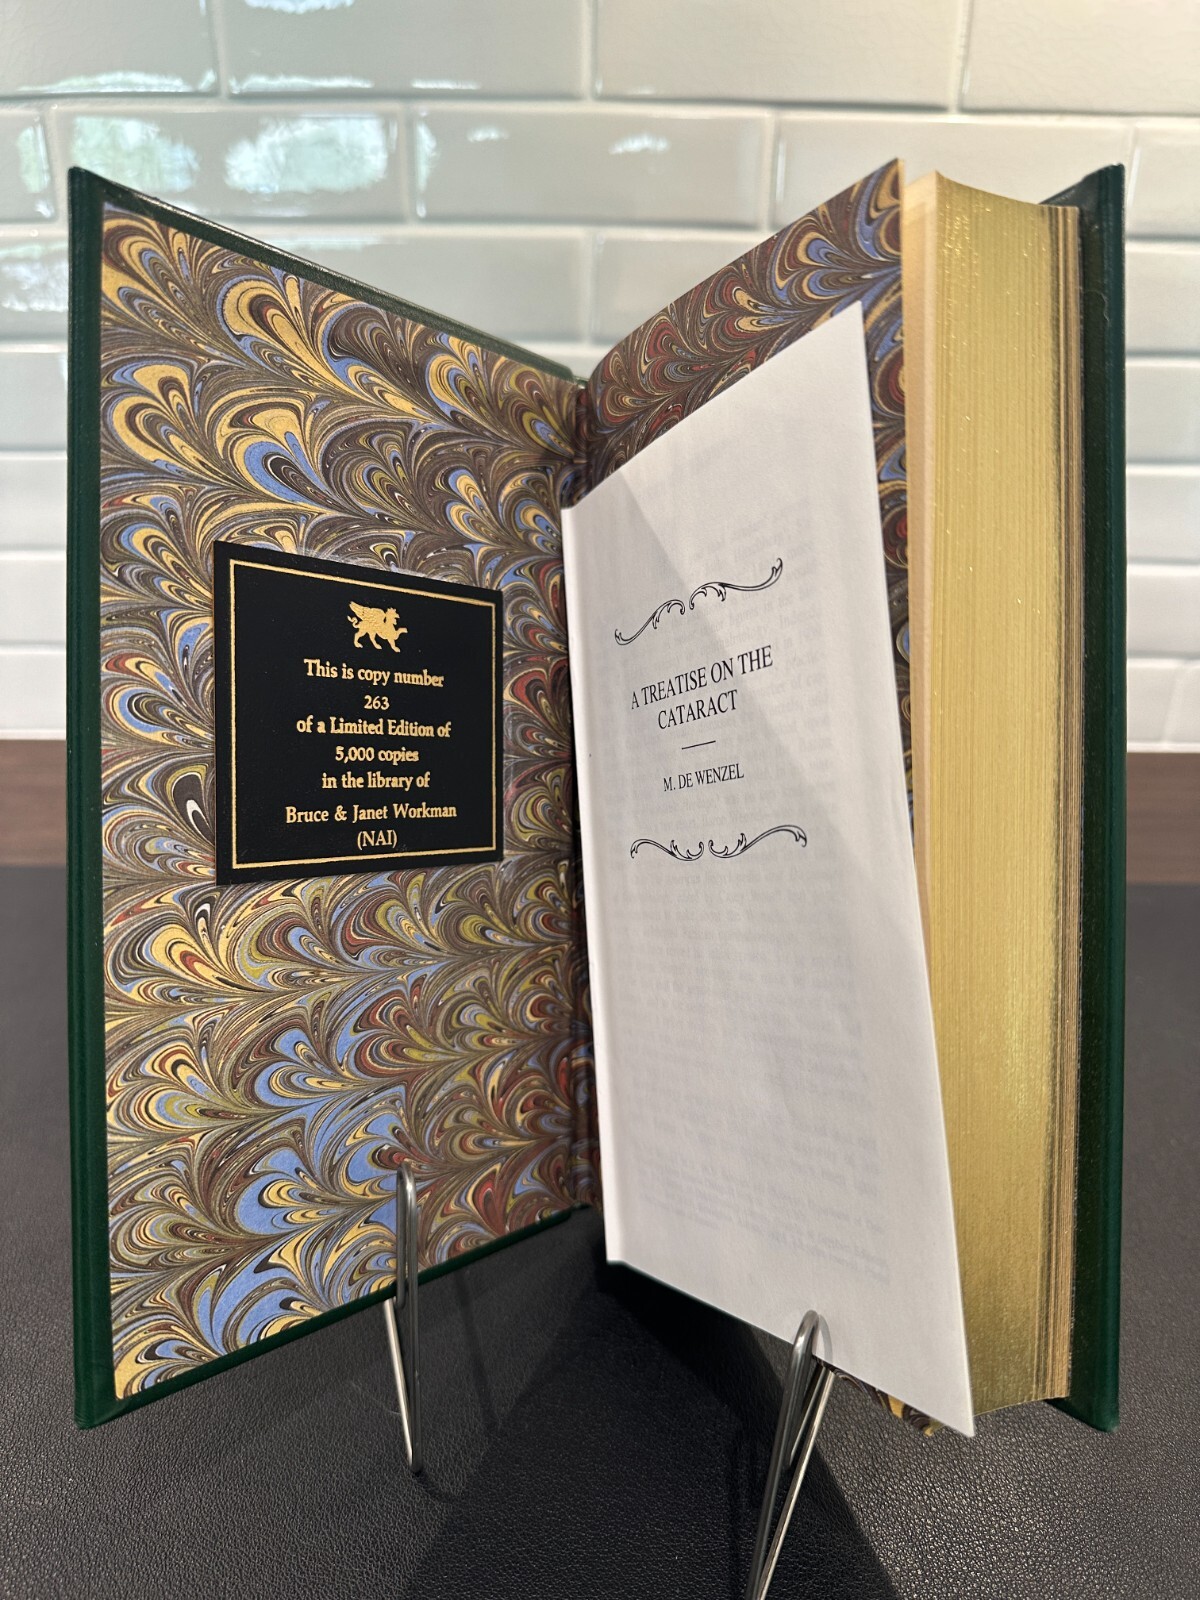 This is copy number
263
of a Limited Edition of
5,000 copies
in the library of
Bruce & Janet Workman
(NAI)
A TREATISE ON THE
CATARACT
M. DE WENZEL